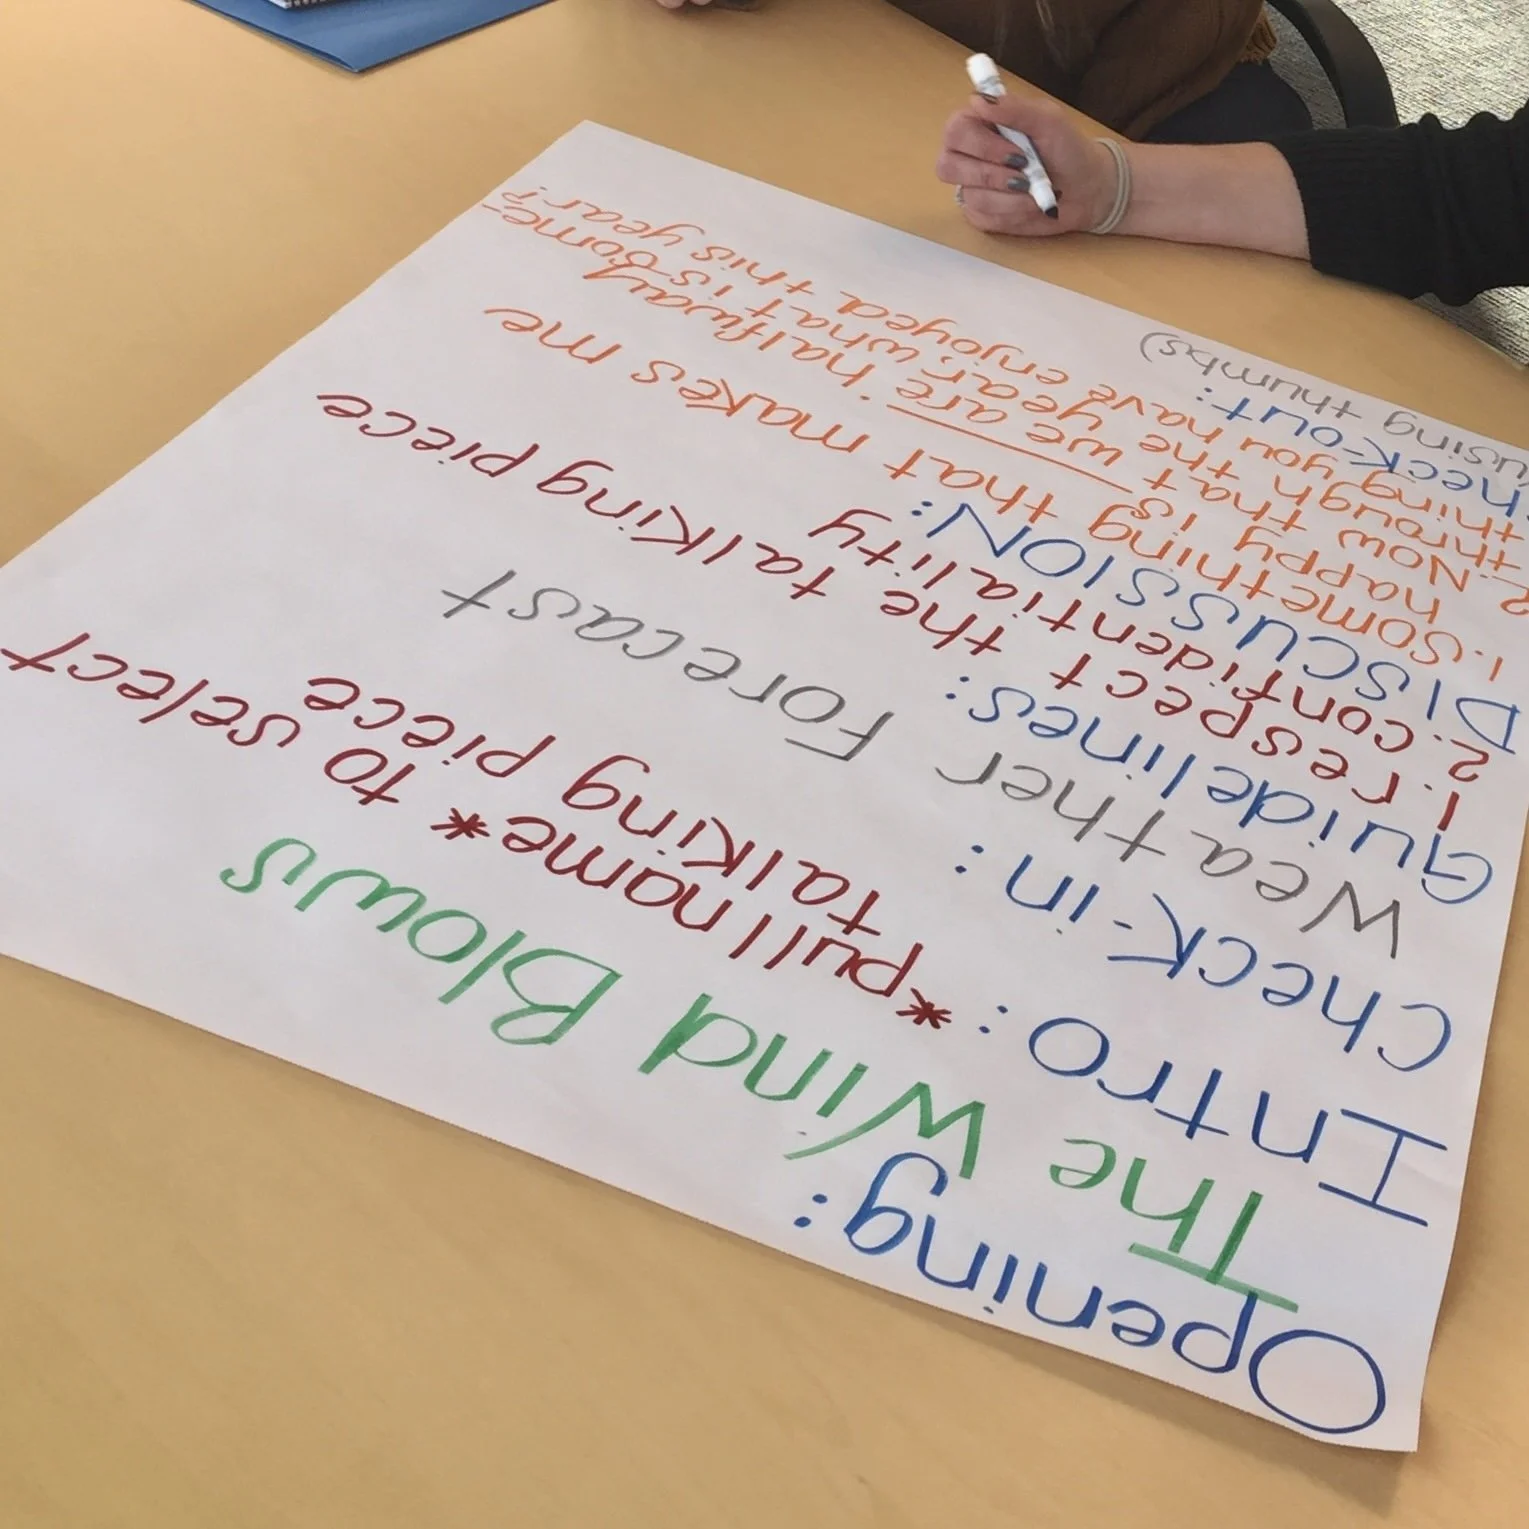 Opening:
The Wind Blows
Intro: *pull name* to select
talking piece
Check-in:
Weather Forecast
Guidelines:
1. respect the talking piece
2. confidentiality
DISCUSSION:
1. Something that makes me
happy is
2. Now that we are halfway
through the year, what is some-
thing you have enjoyed this year?
heck-out:
using thumbs)